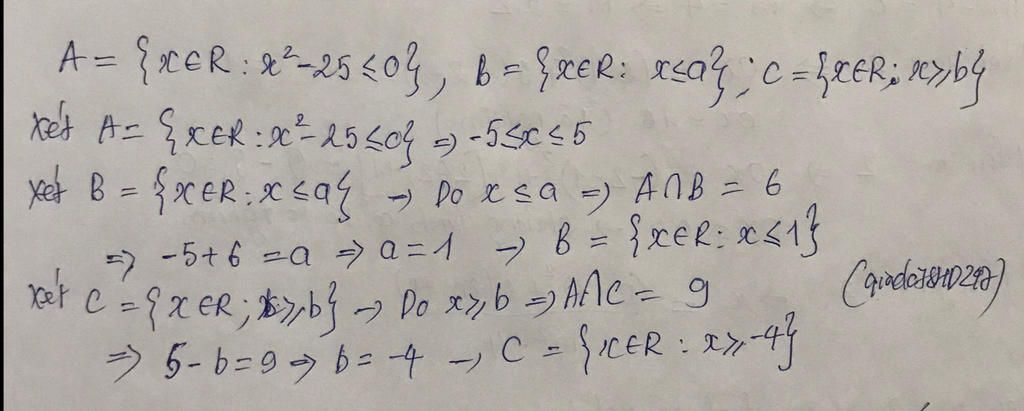 A = {x∈R : x²-25 ≤ 0}, B = {x∈R: x≤a}; C = {x∈R; x≥b}
Xét A = {x∈R : x²-25≤0} => -5≤x≤5
Xét B = {x∈R : x≤a} → Do x≤a => A∩B = 6
=> -5+6 = a => a=1 → B = {x∈R: x≤1}
Xét C = {x∈R; x≥b} → Do x≥b => A∩C = 9
=> 5-b=9 => b=-4 → C = {x∈R : x≥-4}